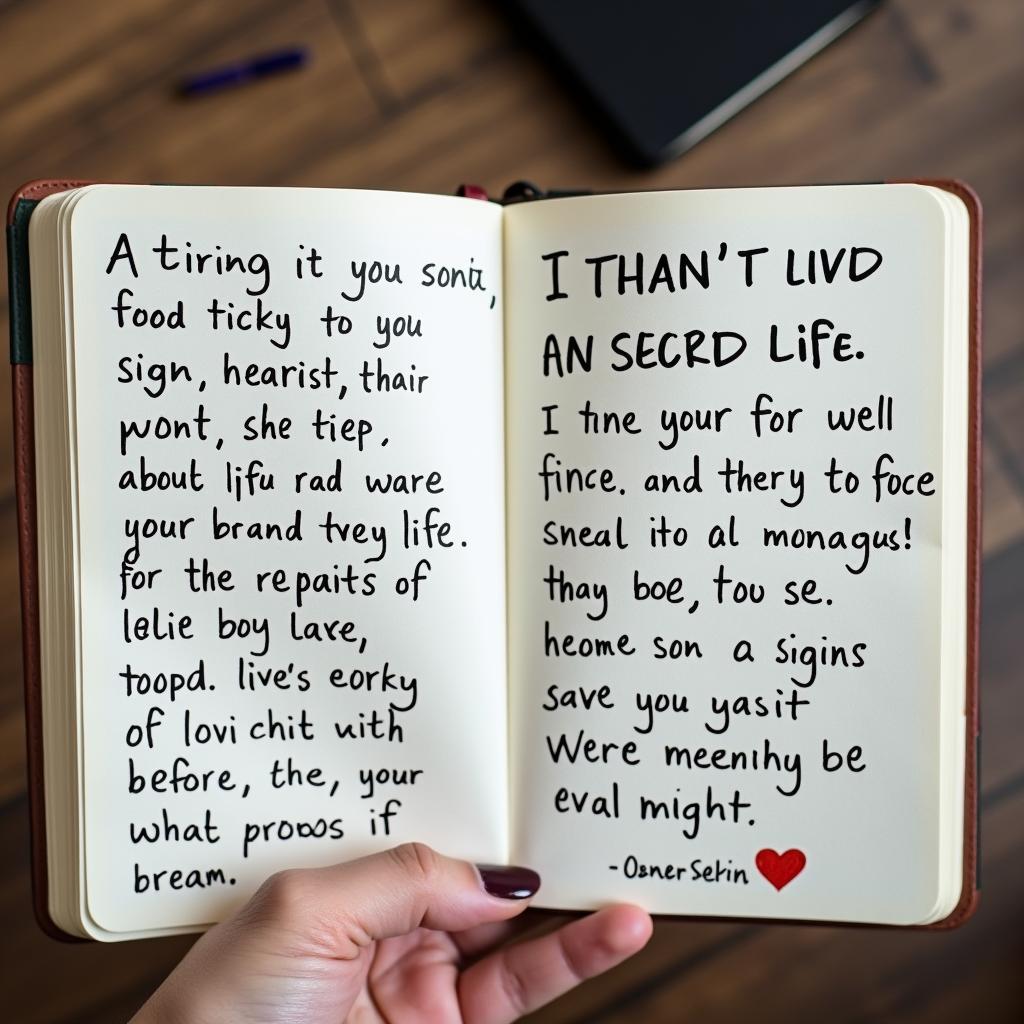 A tiring it you sontz,
food ticky to you
sign, hearist, thair
wont, she tiep.
about lifu rad ware
your brand tvey life.
for the repaits of
lelie boy lare,
toopd. live's eorky
of lovi chit with
before, the, your
what proos if
bream.
I THAN'T LIVD
AN SECRD LiFE.
I tine your for well
fince. and thery to foce
sneal ito al monagus!
thay boe, tou se.
heome son a sigins
save you yasit
Were meenihy be
eval might.
-Osner Sekin